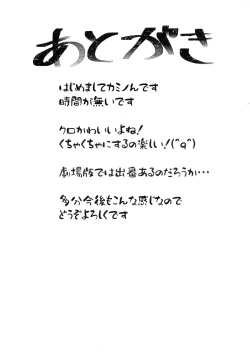 あとがき
はじめましてカミノんです
時間が無いです
クロかわいいよね!
くちゃくちゃにするの楽しい!(^q^)
劇場版では出番あるのだろうか・・・
多分今後もこんな感じなので
どうぞよろしくです